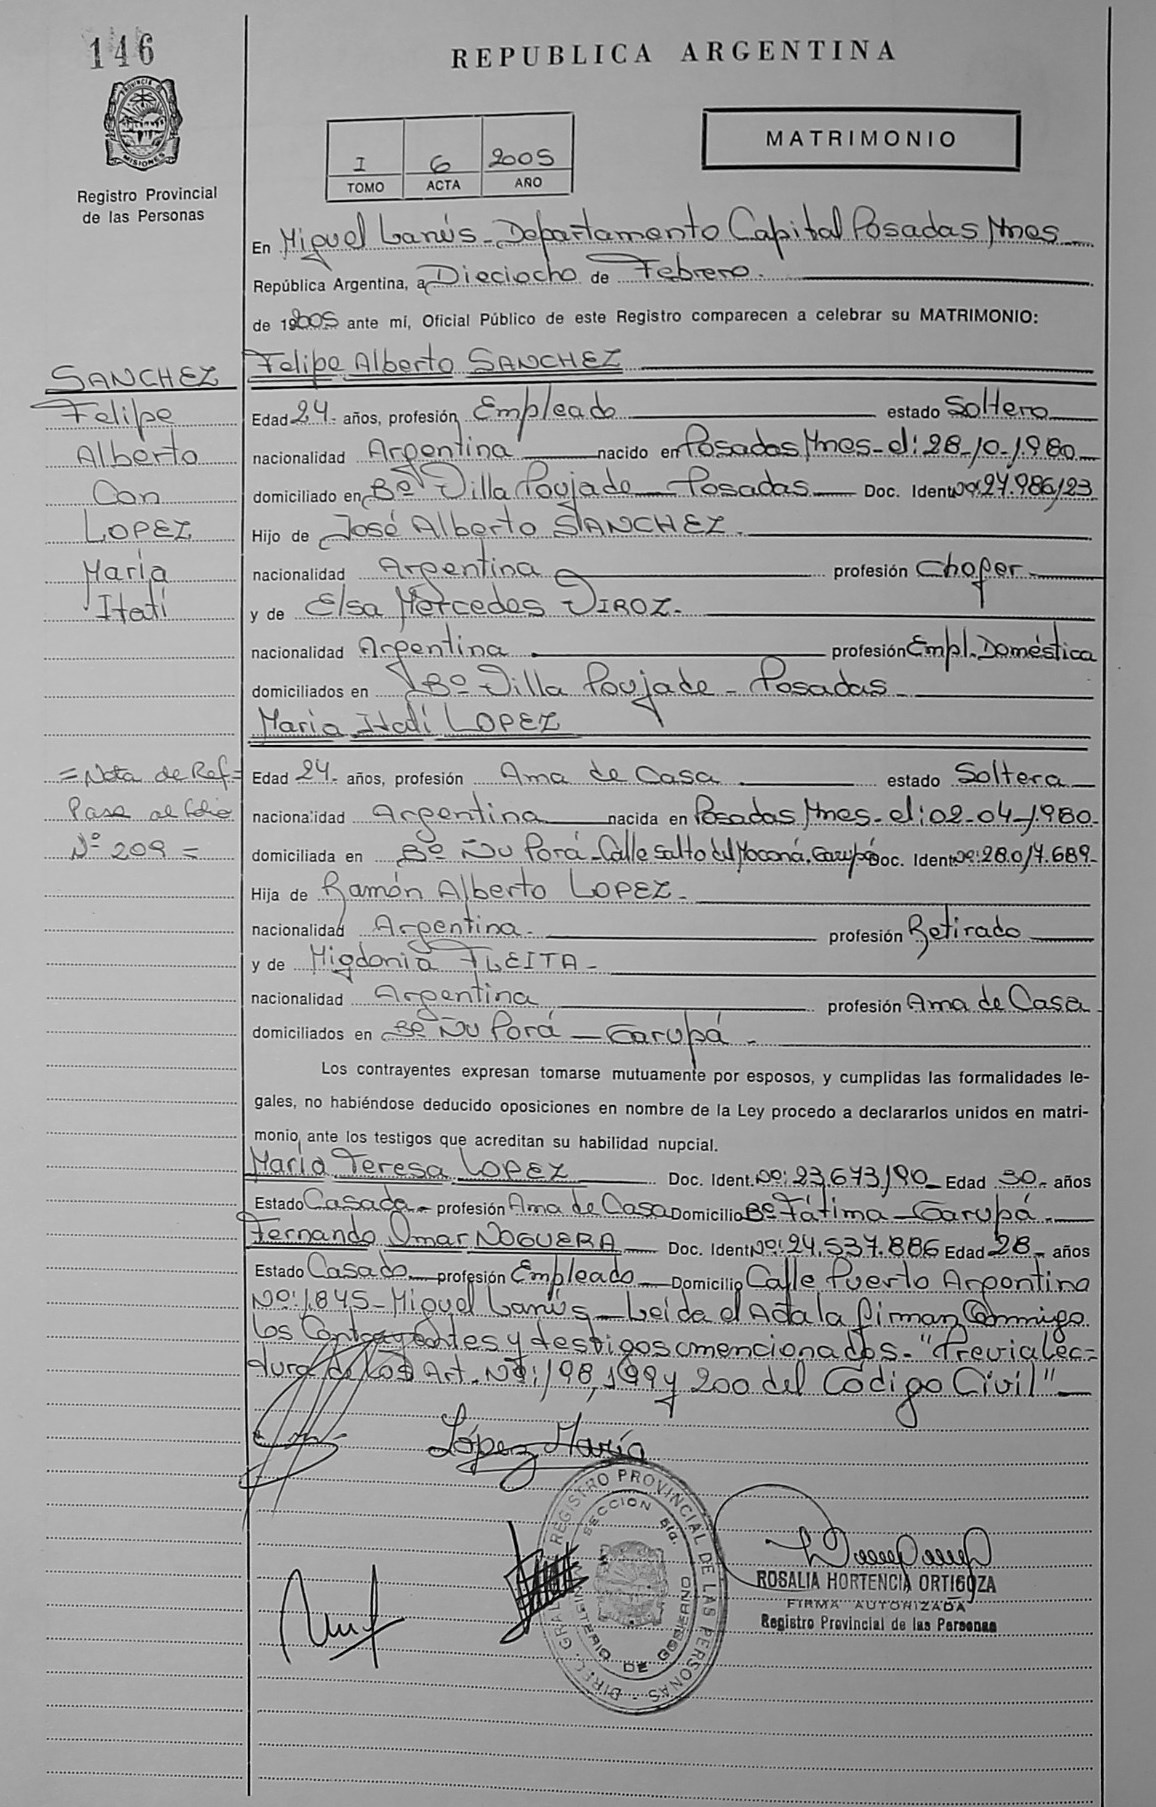 146
REPUBLICA ARGENTINA
PROVINCIA DE MISIONES
Registro Provincial
de las Personas
I 6 2005
TOMO ACTA AÑO
MATRIMONIO
En Miguel Lanús - Departamento Capital Posadas Mnes
República Argentina, a Dieciocho de Febrero.
de 2005 ante mí, Oficial Público de este Registro comparecen a celebrar su MATRIMONIO:
SANCHEZ
Felipe
Alberto
Con
LOPEZ
María
Itatí
= Nota de Ref =
Pasa al folio
Nº 209 =
Felipe Alberto SANCHEZ
Edad 24- años, profesión Empleado estado Soltero
nacionalidad Argentina nacido en Posadas Mnes - el: 28-10-1980
domiciliado en Bº Villa Poujade - Posadas Doc. Ident Nº: 27.986.123
Hijo de José Alberto SANCHEZ.
nacionalidad Argentina profesión Chofer
y de Elsa Mercedes VIROZ.
nacionalidad Argentina profesión Empl. Doméstica
domiciliados en Bº Villa Poujade - Posadas
María Itatí LOPEZ
Edad 24- años, profesión Ama de Casa estado Soltera
nacionalidad Argentina nacida en Posadas Mnes - el: 02-04-1980-
domiciliada en Bº Ñu Porá - Calle Salto del Moconá, Garupá Doc. Ident Nº: 28.017.689-
Hija de Ramón Alberto LOPEZ-
nacionalidad Argentina- profesión Retirado
y de Migdonia FLEITA-
nacionalidad Argentina profesión Ama de Casa
domiciliados en Bº Ñu Porá - Garupá-
Los contrayentes expresan tomarse mutuamente por esposos, y cumplidas las formalidades le-
gales, no habiéndose deducido oposiciones en nombre de la Ley procedo a declararlos unidos en matri-
monio ante los testigos que acreditan su habilidad nupcial.
María Teresa LOPEZ Doc. Ident. Nº: 23.673.190 Edad 30- años
Estado Casada- profesión Ama de Casa Domicilio Bº Fátima - Garupá-
Fernando Omar NOGUERA Doc. Ident Nº: 24.537.886 Edad 28- años
Estado Casado profesión Empleado Domicilio Calle Puerto Argentino
Nº: 1845- Miguel Lanús - Leida el Acta la firman Conmigo
los Contrayentes y testigos mencionados - "Previa lec=
tura de los Art. Nº: 198, 199 y 200 del Código Civil"
López María
DIREC. GRAL. REGISTRO PROVINCIAL DE LAS PERSONAS
MINISTERIO DE GOBIERNO
ROSALIA HORTENCIA ORTIGOZA
FIRMA AUTORIZADA
Registro Provincial de las Personas